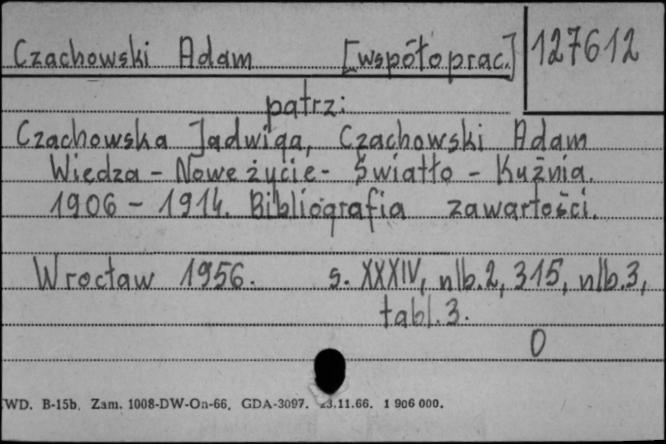 Czachowski Adam [współoprac.] 127612
patrz:
Czachowska Jadwiga, Czachowski Adam
Wiedza - Nowe życie - Światło - Kuźnia.
1906 - 1914. Bibliografia zawartości.
Wrocław 1956. s. XXXIV, nlb. 2, 315, nlb. 3,
tabl. 3.
0
WD. B-15b. Zam. 1008-DW-On-66. GDA-3097. 23.11.66. 1 906 000.